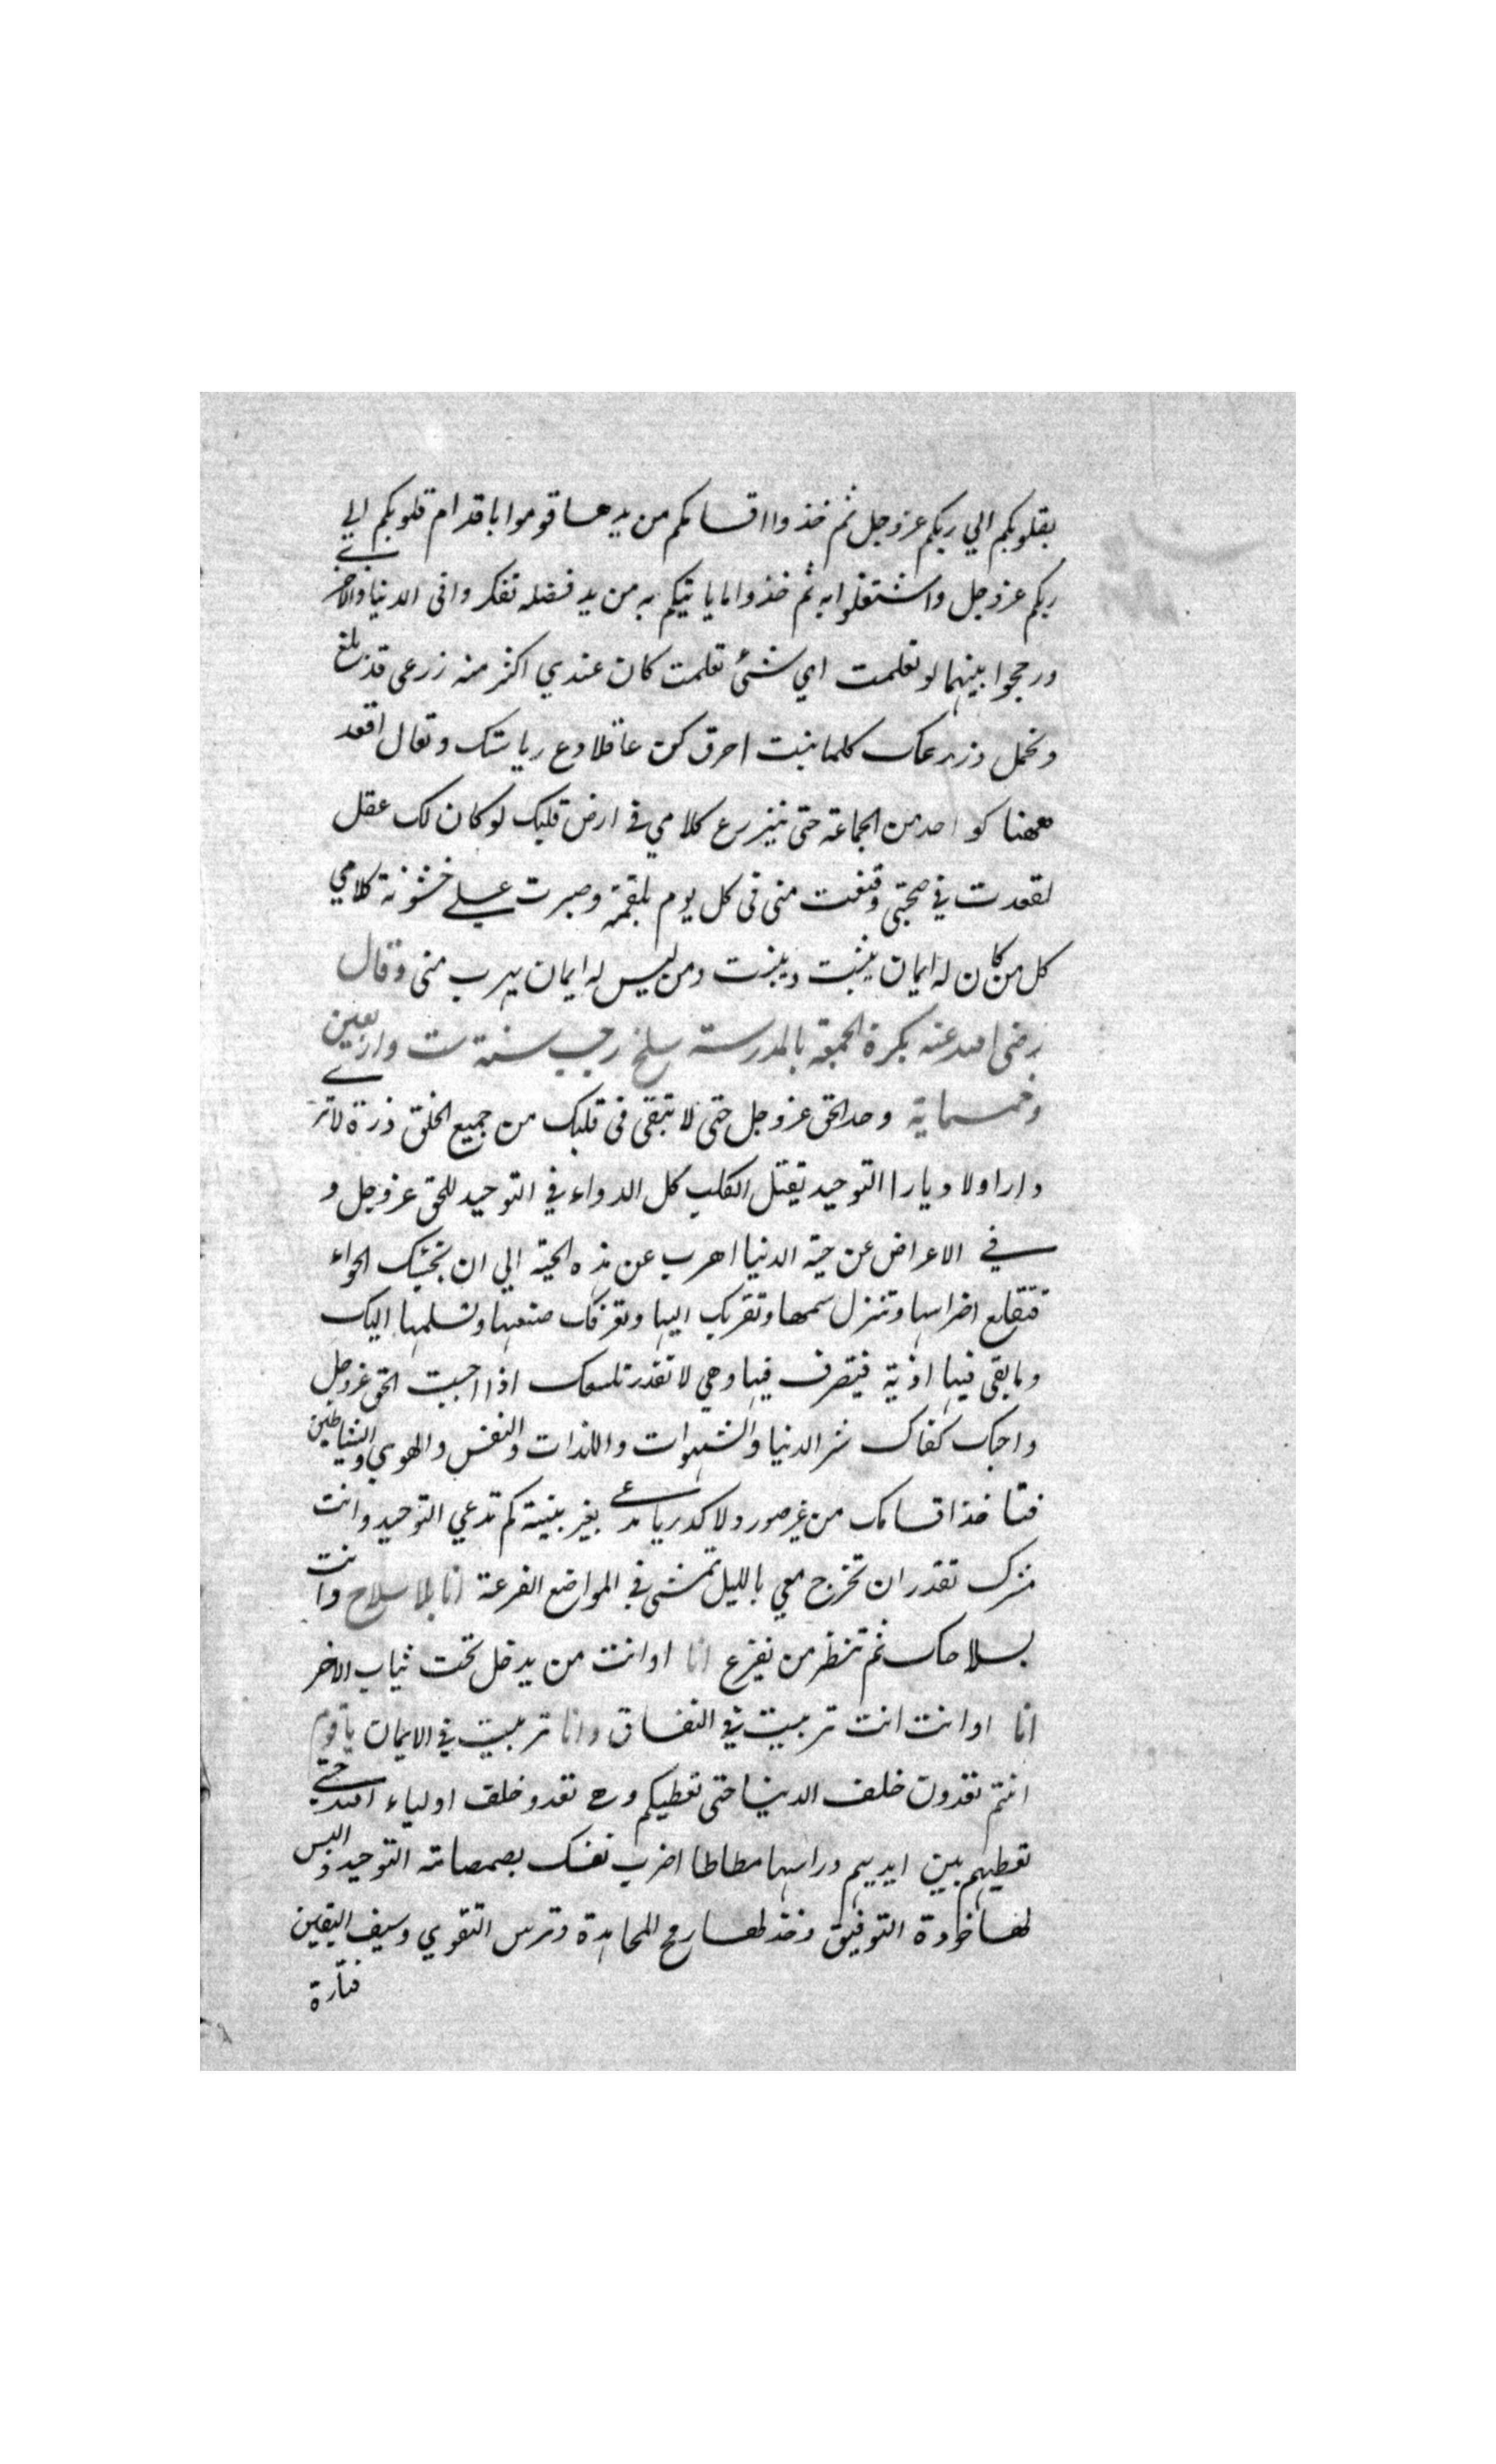 بقلوبكم الي ربكم عزوجل ثم خذوا اقسامكم من يدها قوموا باقدام قلوبكم الي
ربكم عزوجل واشتغلوا به ثم خذوا ما ياتيكم به من يد فضله تفكروا فى الدنيا والاخرة
ورجحوا بينهما لو تعلمت اي شئ تعلمت كان عندي اكثر منه زرعى قد بلغ
وتحمل وزرعك كلما نبت احرق كن عاقلا دع رياستك وتعال اقعد
ههنا كواحد من الجماعة حتى ينزرع كلامي في ارض قلبك لو كان لك عقل
لقعدت في صحبتي وقنعت منى فى كل يوم بلقمة وصبرت علي خشونة كلامي
كل من كان له ايمان يثبت وينبت ومن ليس له ايمان يهرب منى وقال
رضى الله عنه بكرة الجمعة بالمدرسة سلخ رجب سنة ست واربعين
وخمسماية وحد الحق عزوجل حتى لا تبقى فى قلبك من جميع الخلق ذرة لا ترى
دارا ولا ديارا التوحيد يقتل الكلب كل الدواء في التوحيد للحق عزوجل و
في الاعراض عن حية الدنيا اهرب عن هذه الحية الي ان يجئك الحواء
فتقلع اضراسها وتنزل سمها وتقربك اليها وتعرفك صنعها وتسلمها اليك
وما بقى فيها اذية فيتصرف فيها وهي لا تقدر تلسعك اذا احببت الحق عزوجل
واحبك كفاك شر الدنيا والشهوات واللذات والنفس والهوي والشياطين
فتاخذ اقسامك من غير صور ولا كدر يا مدعي بغير بينة كم تدعي التوحيد وانت
مشرك تقدر ان تخرج معي بالليل تمشى في المواضع الفزعة انا بلا سلاح وانت
بسلاحك ثم تنظر من يفزع انا او انت من يدخل تحت ثياب الاخر
انا او انت انت تربيت في النفاق وانا تربيت في الايمان يا قوم
انتم تعدون خلف الدنيا حتى تعطيكم وهي تعدو خلف اولياء الله حتي
تعطيهم بين ايديهم وراسها مطاطا اضرب نفسك بصمصامة التوحيد والبس
لها خوذة التوفيق وخذ لها رمح المجاهدة وترس التقوي وسيف اليقين
فتارة